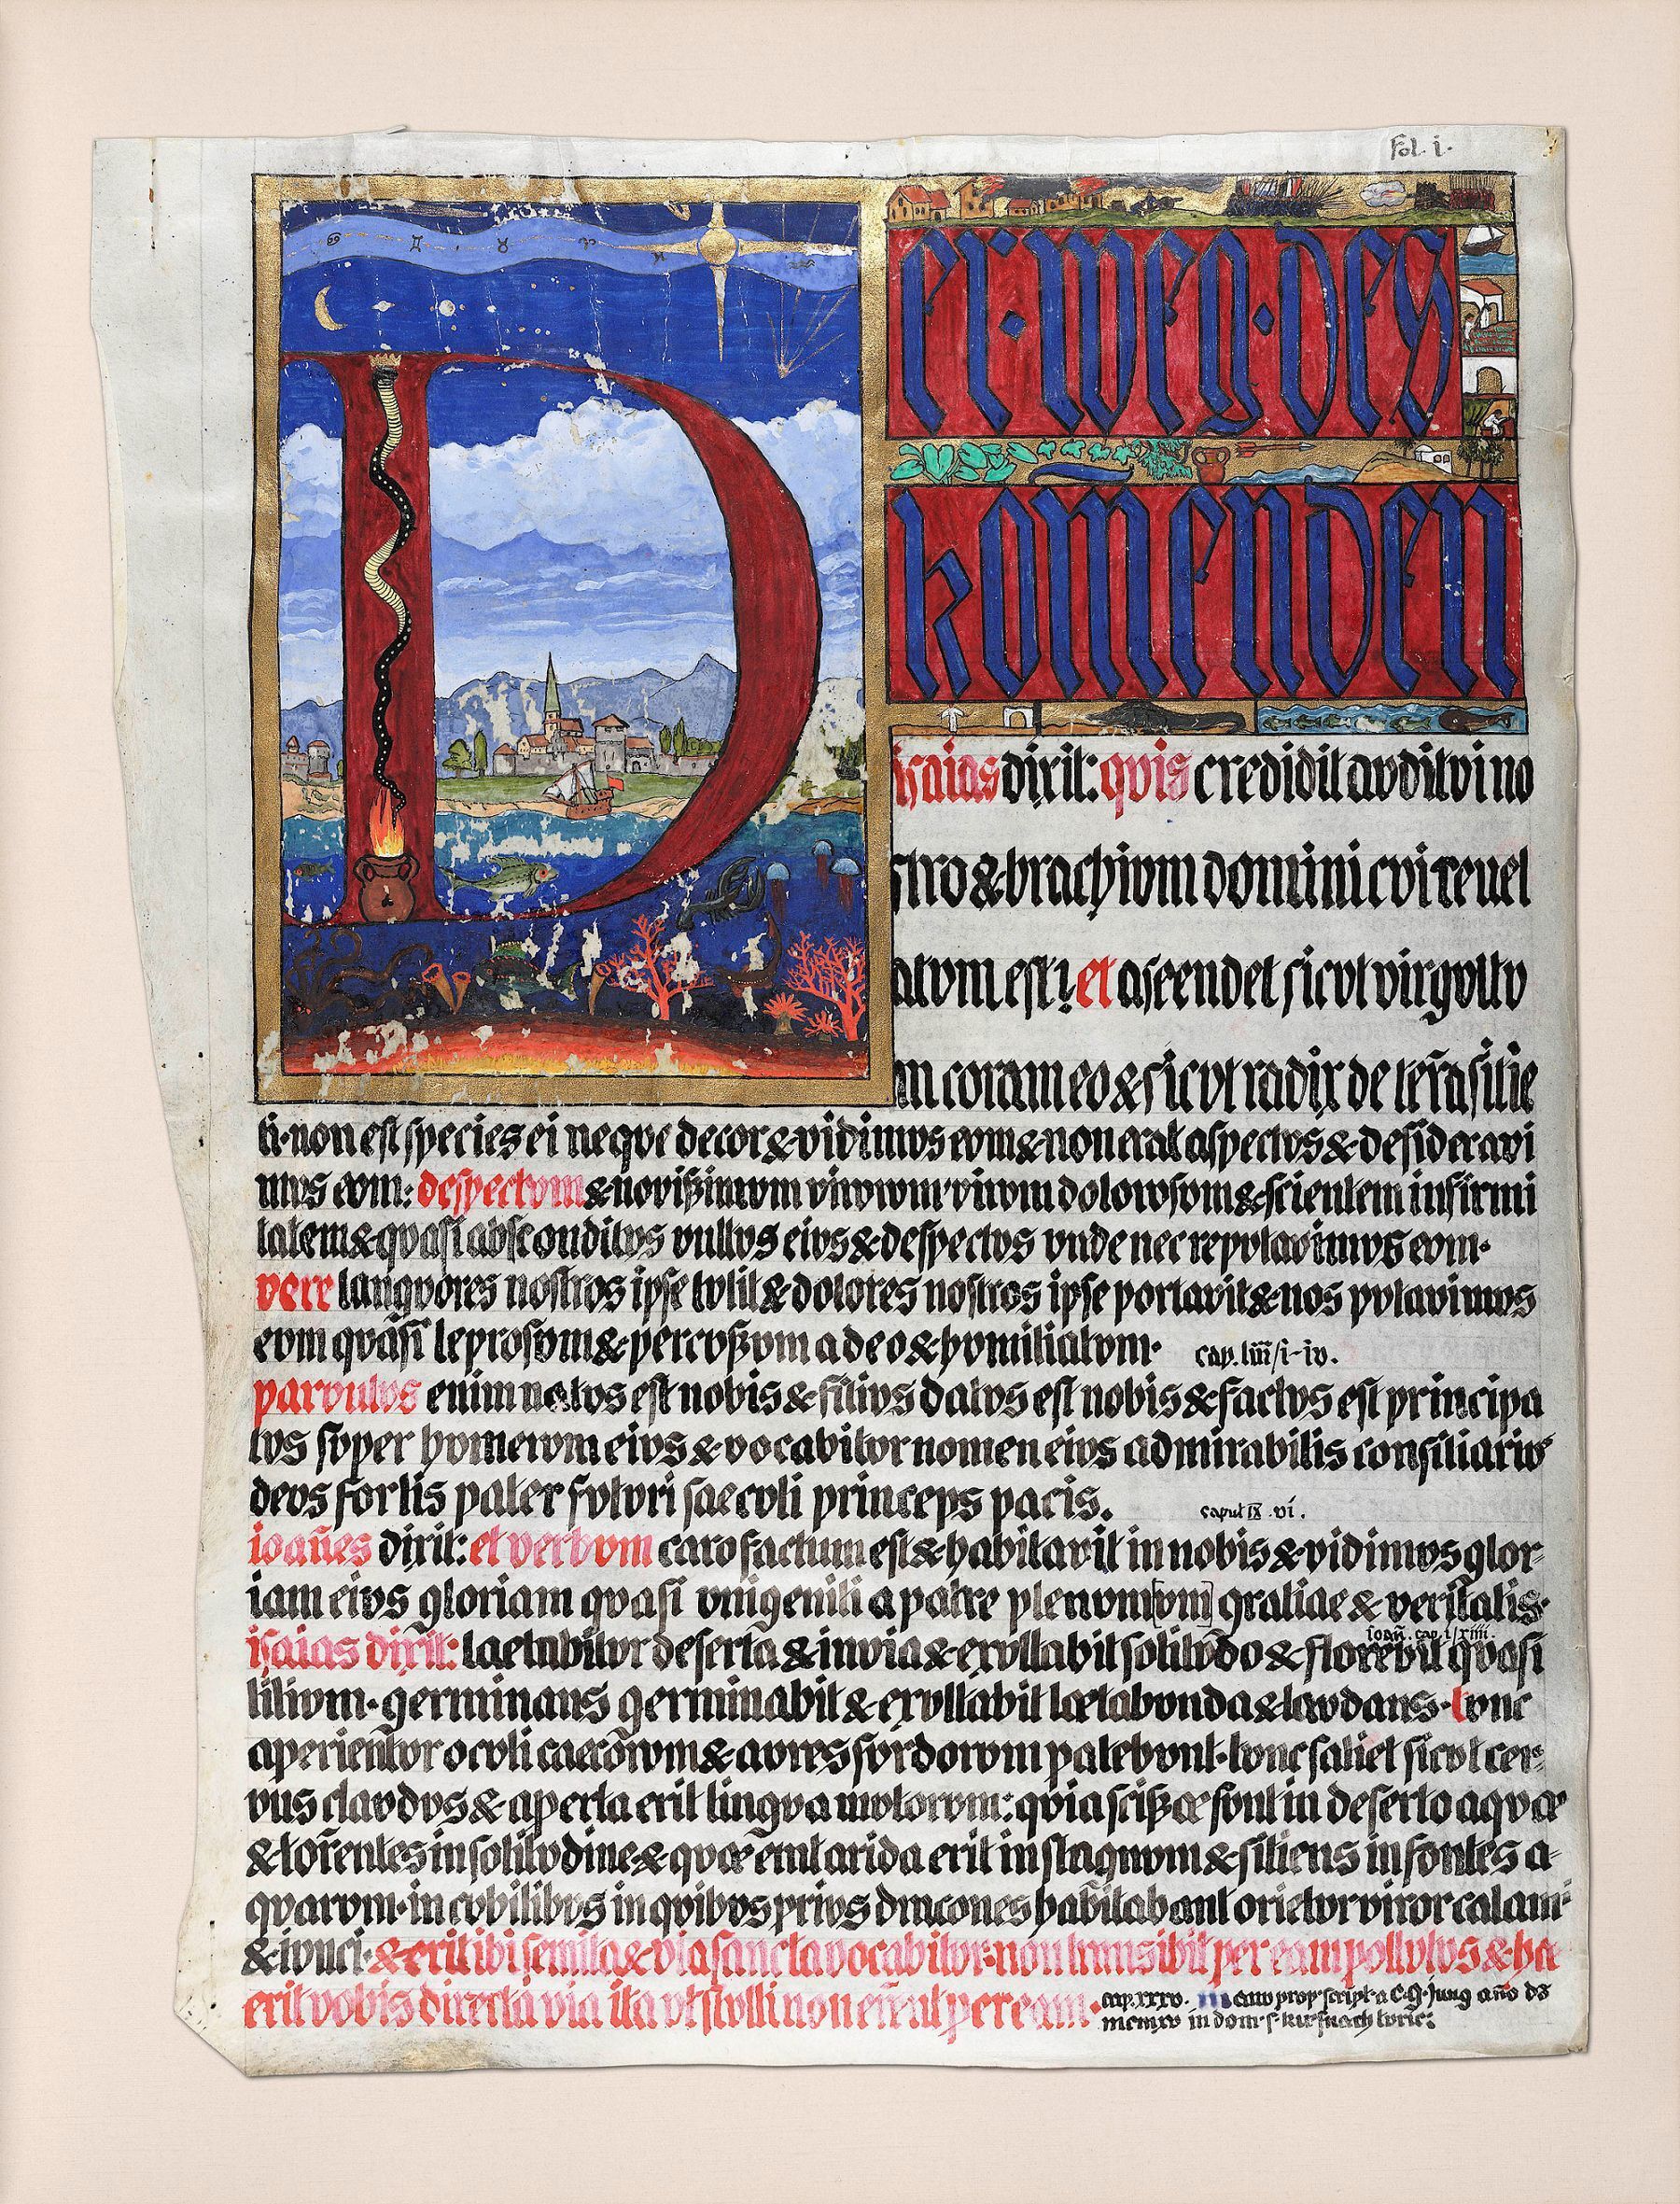 fol. i.
Der · weg · des
komenden
isaias dixit: quis credidit auditui no
stro & brachium domini cui reuel
atum est? et ascendet sicut virgultu
m coram eo & sicut radix de terra sitie
ti · non est species ei neque decor & vidimus eum & non erat aspectus & desideravi
mus eum: despectum & novissimum virorum virum dolorosum & scientem infirmi
tatem & quasi absconditus vultus eius & despectus unde nec reputavimus eum ·
vere languores nostros ipse tulit & dolores nostros ipse portavit & nos putavimus
eum quasi leprosum & percussum a deo & humiliatum · cap. liii/i-iv.
parvulus enim natus est nobis & filius datus est nobis & factus est principa
tus super humerum eius & vocabitur nomen eius admirabilis consiliarius
deus fortis pater futuri saeculi princeps pacis. caput ix .vi.
ioañes dixit: et verbum caro factum est & habitavit in nobis & vidimus glor-
iam eius gloriam quasi unigeniti a patre plenum[um] gratiae & veritatis.
ioañ. cap. i/xiiii.
isaias dixit: laetabitur deserta & invia & exultabit solitudo & florebit quasi
lilium · germinans germinabit & exultabit lætabunda & laudans · tunc
aperientur oculi caecorum & aures surdorum patebunt · tunc saliet sicut cer-
vus claudus & aperta erit lingua mutorum: quia scissæ sunt in deserto aquæ
& torrentes in solitudine & quæ erat arida erit in stagnum & sitiens in fontes a-
quarum · in cubilibus in quibus prius dracones habitabant orietur viror calami
& iunci · & erit ibi semita & via sancta vocabitur · non transibit per eam pollutus & hæ
erit vobis directa via ita ut stulti non errent per eam · cap. xxxv. manu propr. script. a C. G. jung año dō
mcmxv in dom. s. kusnach turic: